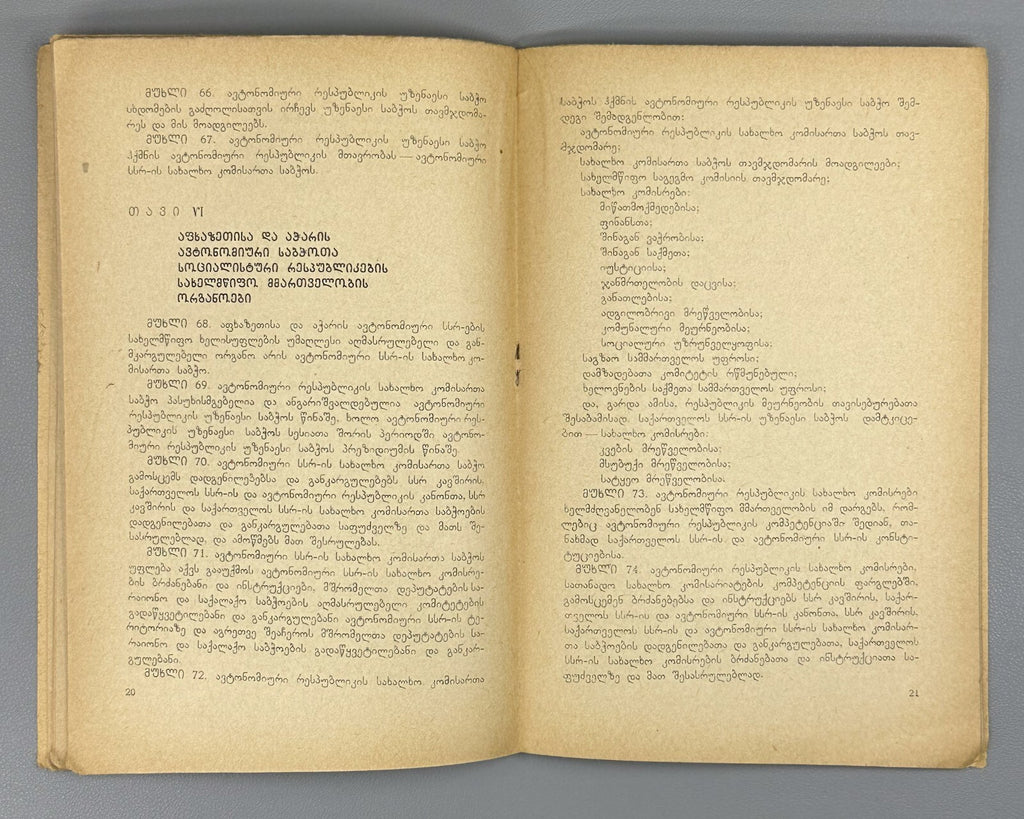 მუხლი 66. ავტონომიური რესპუბლიკის უზენაესი საბჭო
სხდომების გაძღოლისათვის ირჩევს უზენაესი საბჭოს თავმჯდომა-
რეს და მის მოადგილეებს.
მუხლი 67. ავტონომიური რესპუბლიკის უზენაესი საბჭო
ჰქმნის ავტონომიური რესპუბლიკის მთავრობას — ავტონომიური
სსრ-ის სახალხო კომისართა საბჭოს.
თავი VI
აფხაზეთისა და აჭარის
ავტონომიური საბჭოთა
სოციალისტური რესპუბლიკების
სახელმწიფო მმართველობის
ორგანოები
მუხლი 68. აფხაზეთისა და აჭარის ავტონომიური სსრ-ების
სახელმწიფო ხელისუფლების უმაღლესი აღმასრულებელი და გან-
მკარგულებელი ორგანო არის ავტონომიური სსრ-ის სახალხო კო-
მისართა საბჭო.
მუხლი 69. ავტონომიური რესპუბლიკის სახალხო კომისართა
საბჭო პასუხისმგებელია და ანგარიშვალდებულია ავტონომიური
რესპუბლიკის უზენაესი საბჭოს წინაშე, ხოლო ავტონომიური რეს-
პუბლიკის უზენაესი საბჭოს სესიათა შორის პერიოდში ავტონო-
მიური რესპუბლიკის უზენაესი საბჭოს პრეზიდიუმის წინაშე.
მუხლი 70. ავტონომიური სსრ-ის სახალხო კომისართა საბჭო
გამოსცემს დადგენილებებსა და განკარგულებებს სსრ კავშირის,
საქართველოს სსრ-ის და ავტონომიური რესპუბლიკის კანონთა, სსრ
კავშირის და საქართველოს სსრ-ის სახალხო კომისართა საბჭოების
დადგენილებათა და განკარგულებათა საფუძველზე და მათს შე-
სასრულებლად, და ამოწმებს მათ შესრულებას.
მუხლი 71. ავტონომიური სსრ-ის სახალხო კომისართა საბჭოს
უფლება აქვს გააუქმოს ავტონომიური სსრ-ის სახალხო კომისრე-
ბის ბრძანებანი და ინსტრუქციები, მშრომელთა დეპუტატების სა-
რაიონო და საქალაქო საბჭოების აღმასრულებელი კომიტეტების
გადაწყვეტილებანი და განკარგულებანი ავტონომიური სსრ-ის ტე-
რიტორიაზე და აგრეთვე შეაჩეროს მშრომელთა დეპუტატების სა-
რაიონო და საქალაქო საბჭოების გადაწყვეტილებანი და განკარ-
გულებანი.
მუხლი 72. ავტონომიური რესპუბლიკის სახალხო კომისართა
20
საბჭოს ჰქმნის ავტონომიური რესპუბლიკის უზენაესი საბჭო შემ-
დეგი შემადგენლობით:
ავტონომიური რესპუბლიკის სახალხო კომისართა საბჭოს თავ-
მჯდომარე;
სახალხო კომისართა საბჭოს თავმჯდომარის მოადგილეები;
სახელმწიფო საგეგმო კომისიის თავმჯდომარე;
სახალხო კომისრები:
მიწათმოქმედებისა;
ფინანსთა;
შინაგან ვაჭრობისა;
შინაგან საქმეთა;
იუსტიციისა;
ჯანმრთელობის დაცვისა;
განათლებისა;
ადგილობრივი მრეწველობისა;
კომუნალური მეურნეობისა;
სოციალური უზრუნველყოფისა;
საგზაო სამმართველოს უფროსი;
დამზადებათა კომიტეტის რწმუნებული;
ხელოვნების საქმეთა სამმართველოს უფროსი;
და, გარდა ამისა, რესპუბლიკის მეურნეობის თავისებურებათა
შესაბამისად, საქართველოს სსრ-ის უზენაესი საბჭოს დამტკიცე-
ბით — სახალხო კომისრები:
კვების მრეწველობისა;
მსუბუქი მრეწველობისა;
სატყეო მრეწველობისა.
მუხლი 73. ავტონომიური რესპუბლიკის სახალხო კომისრები
ხელმძღვანელობენ სახელმწიფო მმართველობის იმ დარგებს, რომ-
ლებიც ავტონომიური რესპუბლიკის კომპეტენციაში შედიან, თა-
ნახმად საქართველოს სსრ-ის და ავტონომიური სსრ-ის კონსტი-
ტუციებისა.
მუხლი 74. ავტონომიური რესპუბლიკის სახალხო კომისრები,
სათანადო სახალხო კომისარიატების კომპეტენციის ფარგლებში,
გამოსცემენ ბრძანებებსა და ინსტრუქციებს სსრ კავშირის, საქარ-
თველოს სსრ-ის და ავტონომიური სსრ-ის კანონთა, სსრ კავშირის,
საქართველოს სსრ-ის და ავტონომიური სსრ-ის სახალხო კომისარ-
თა საბჭოების დადგენილებათა და განკარგულებათა, საქართველოს
სსრ-ის სახალხო კომისრების ბრძანებათა და ინსტრუქციათა სა-
ფუძველზე და მათ შესასრულებლად.
21